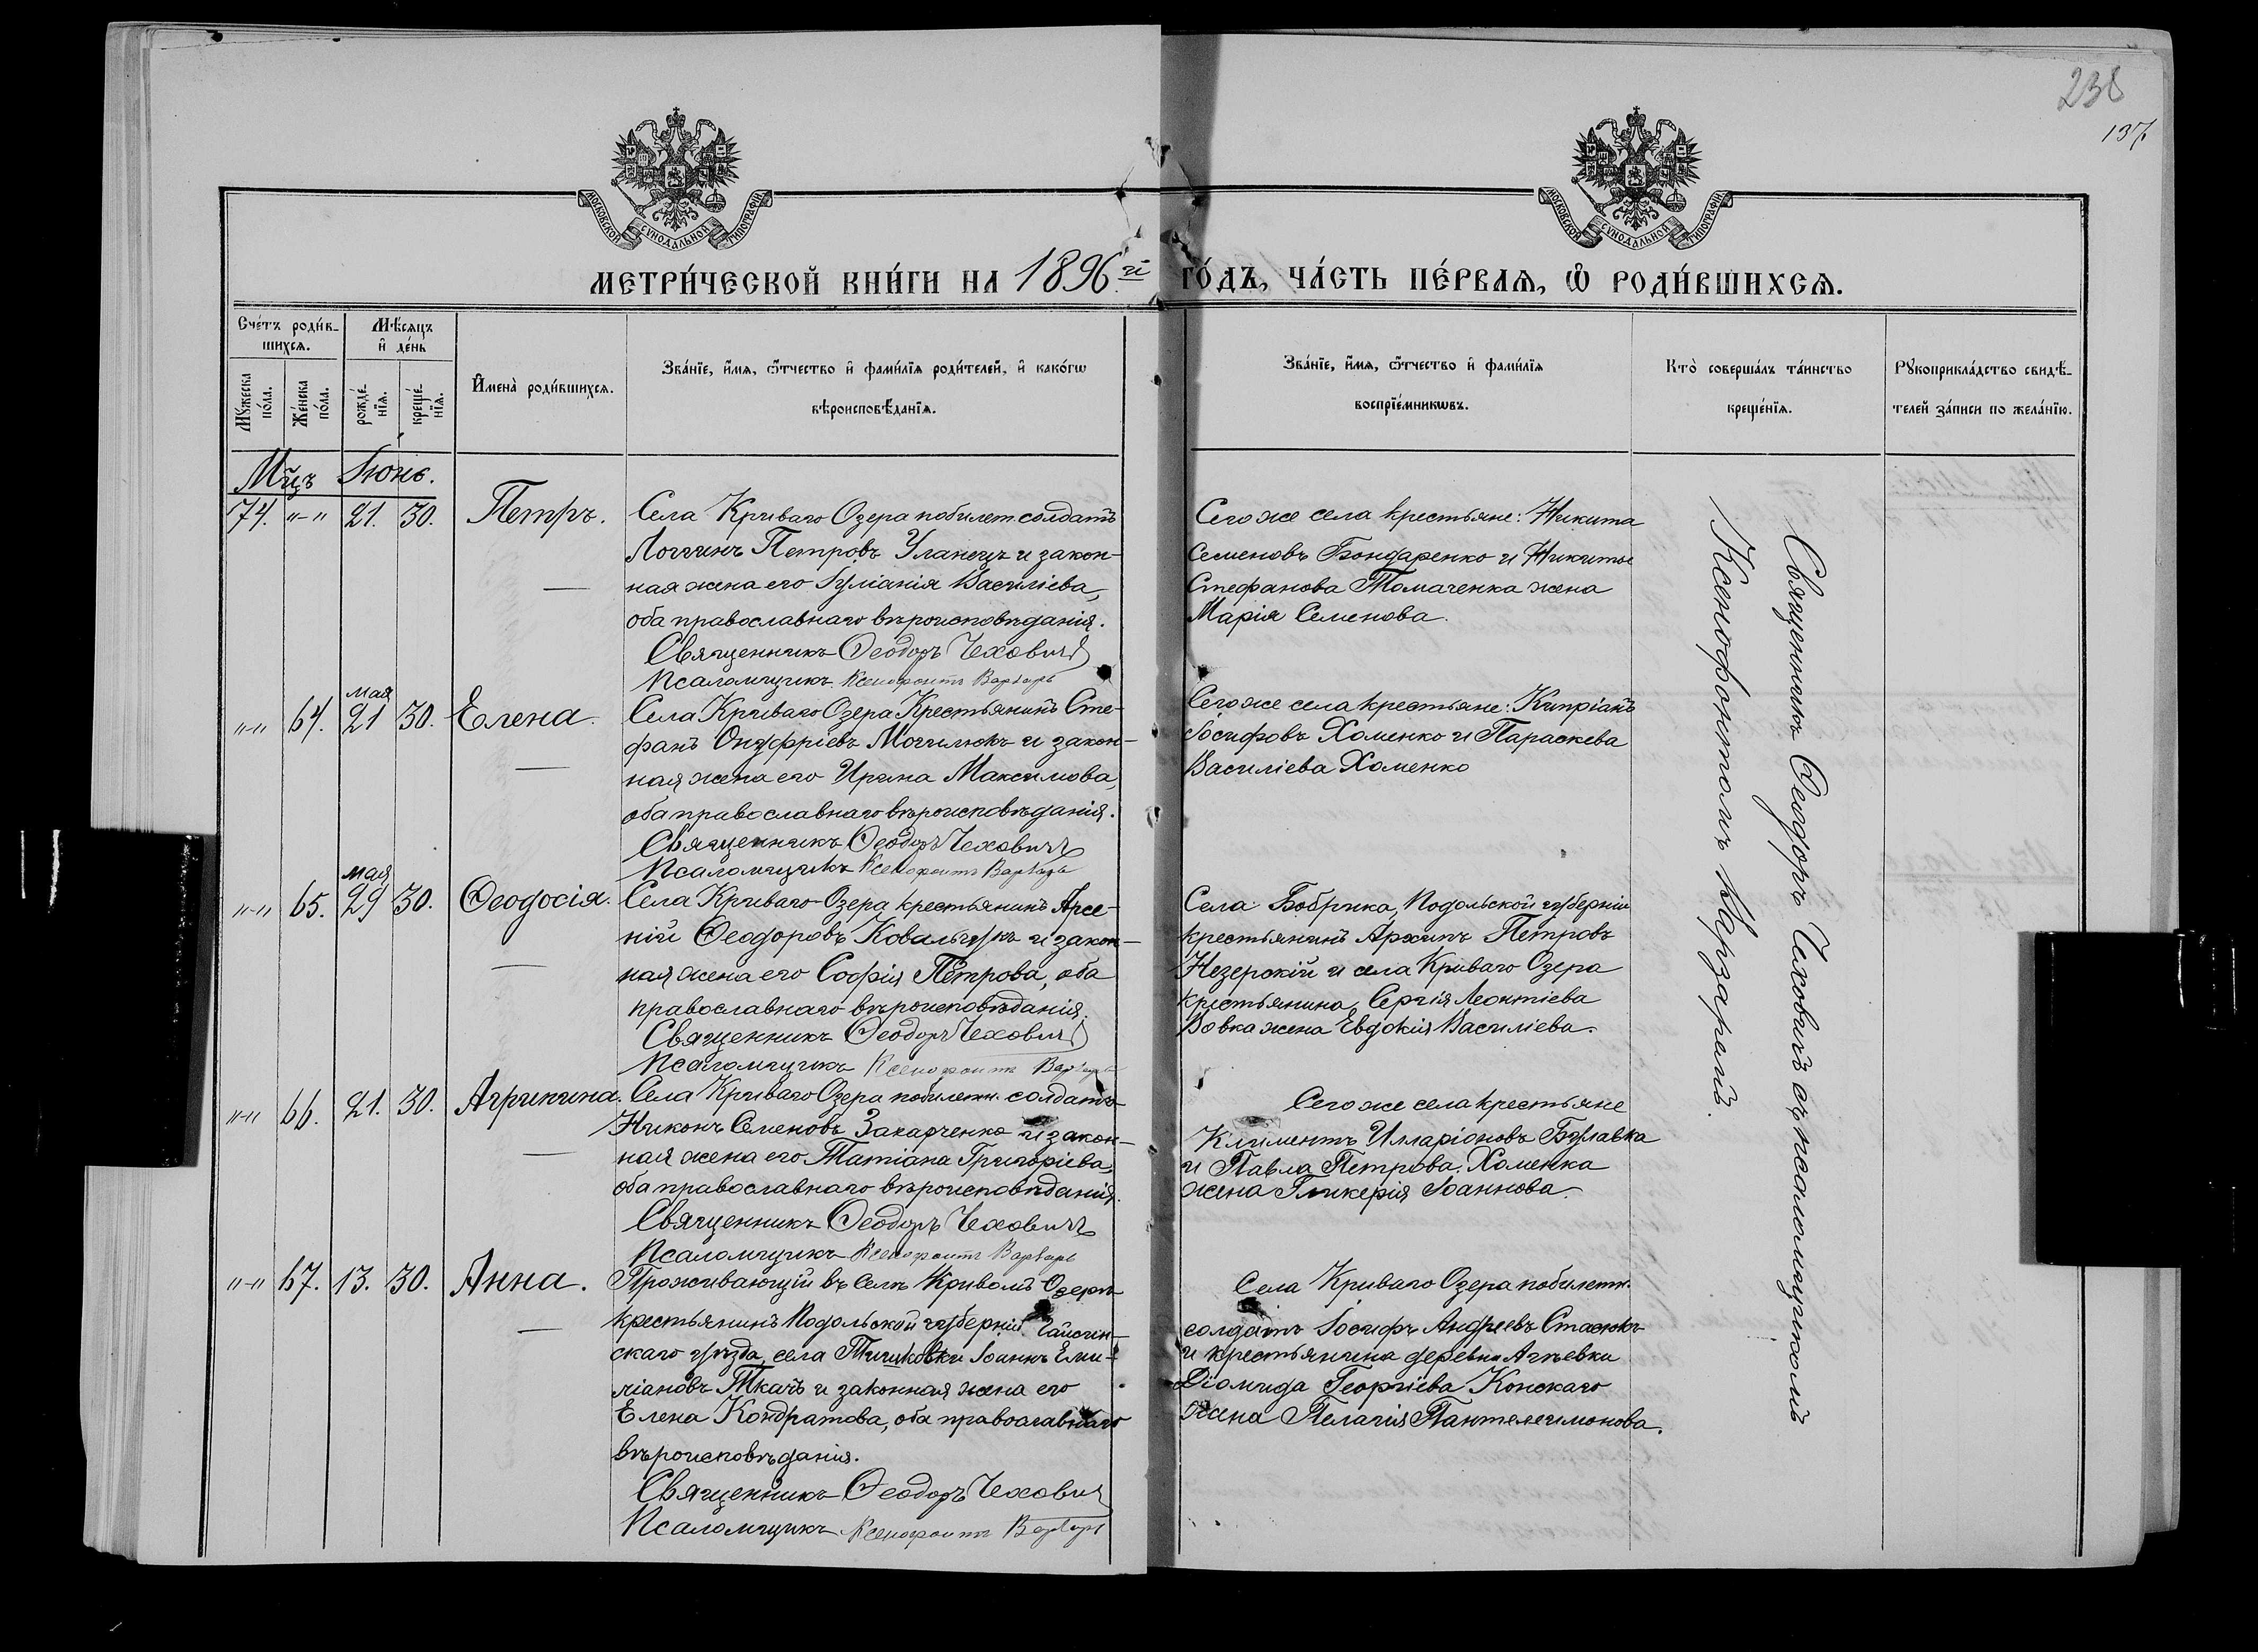 238
137
МОСКОВСКОЙ СѴНОДАЛЬНОЙ ТИПОГРАФІИ
МОСКОВСКОЙ СѴНОДАЛЬНОЙ ТИПОГРАФІИ
МЕТРИ́ЧЕСКОЙ КНИ́ГИ НА 1896й ГО́ДЪ, ЧА́СТЬ ПЕ́РВАЯ, Ѽ РОДИ́ВШИХСЯ.
Сче́тъ роди́в-
шихся.
Мѣ́сяцъ
и҆ де́нь
Мꙋ́жеска
по́ла.
Же́нска
по́ла.
рожде́-
нїя.
креще́-
нїя.
И҆мена̀ роди́вшихся.
Зва́нїе, и҆́мя, ѻ҆́тчество и҆ фами́лїя роди́телей, и҆ како́гѡ
вѣроисповѣ́данїя.
Зва́нїе, и҆́мя, ѻ҆́тчество и҆ фами́лїя
воспрїе́мникѡвъ.
Кто̀ соверша́лъ та́инство
креще́нїя.
Рꙋкоприкла́дство свидѣ́-
телей за́писи по жела́нїю.
Мцъ Іюнь.
74. "-" 21. 30. Петръ.
Села Криваго Озера побилет. солдатъ
Логгинъ Петровъ Уланецъ и закон-
ная жена его Іуліанія Василіева,
оба православнаго вѣроисповѣданія.
Священникъ Ѳеодоръ Чеховичъ
Псаломщикъ Ксенофонтъ Варзарь
Сего же села крестьяне: Никита
Семеновъ Бондаренко и Никиты
Стефанова Томаченка жена
Марія Семенова.
"-" 64. мая 21 30. Елена.
Села Криваго Озера Крестьянинъ Сте-
фанъ Онуфріевъ Могилюкъ и закон-
ная жена его Ирина Максимова,
оба православнаго вѣроисповѣданія.
Священникъ Ѳеодоръ Чеховичъ
Псаломщикъ Ксенофонтъ Варзарь
Сего же села крестьяне: Кипріанъ
Іосифовъ Хоменко и Параскева
Василіева Хоменко
"-" 65. мая 29 30. Ѳеодосія.
Села Криваго Озера крестьянинъ Арсе-
ній Ѳеодоровъ Ковальчукъ и закон-
ная жена его Софія Петрова, оба
православнаго вѣроисповѣданія.
Священникъ Ѳеодоръ Чеховичъ
Псаломщикъ Ксенофонтъ Варзарь
Села Бобрика, Подольской губерніи
крестьянинъ Архипъ Петровъ
Незерскій и села Криваго Озера
крестьянина, Сергія Леонтіева
Вовка жена Евдокія Василіева.
"-" 66. 21. 30. Агрипина.
Села Криваго Озера побилетн. солдатъ
Никонъ Семеновъ Захарченко и закон-
ная жена его Татіана Григоріева,
оба православнаго вѣроисповѣданія.
Священникъ Ѳеодоръ Чеховичъ
Псаломщикъ Ксенофонтъ Варзарь
Сего же села крестьяне
Климентъ Илларіоновъ Булавка
и Павла Петрова Хоменка
жена Гликерія Іоаннова.
"-" 67. 13. 30. Анна.
Проживающій въ селѣ Кривомъ Озерѣ
крестьянинъ Подольской губерніи Гайсин-
скаго уѣзда, села Тишковки Іоаннъ Еми-
ліановъ Ткачъ и законная жена его
Елена Кондратова, оба православнаго
вѣроисповѣданія.
Священникъ Ѳеодоръ Чеховичъ
Псаломщикъ Ксенофонтъ Варзарь
Села Криваго Озера побилетн.
солдатъ Іосифъ Андреевъ Стасюкъ
и крестьянина деревни Агѣевки
Діомида Георгіева Конскаго
жена Пелагія Пантелеимонова.
Священникъ Ѳеодоръ Чеховичъ съ псаломщикомъ
Ксенофонтомъ Варзаремъ.